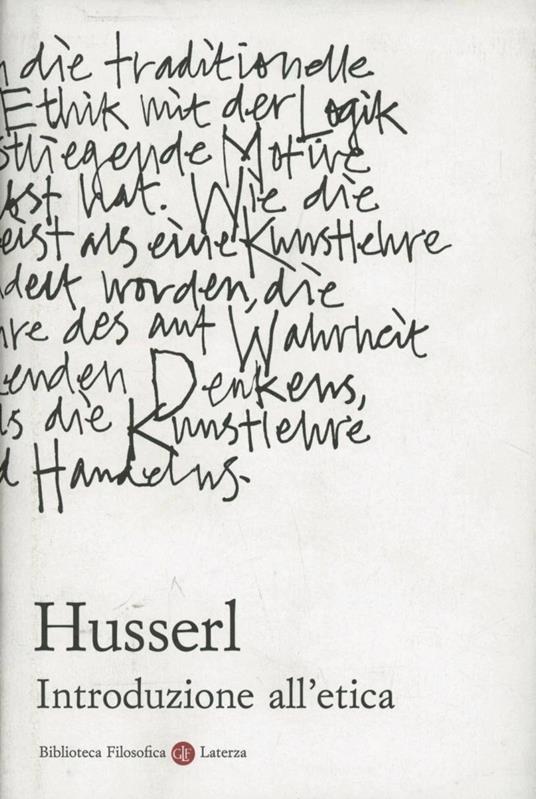 die traditionelle
Ethik mit der Logik
liegende Motive
hat. Wie die
ist als eine Kunstlehre
worden, die
des auf Wahrheit
enden Denkens,
die Kunstlehre
Handelns.
Husserl
Introduzione all'etica
Biblioteca Filosofica GLF Laterza